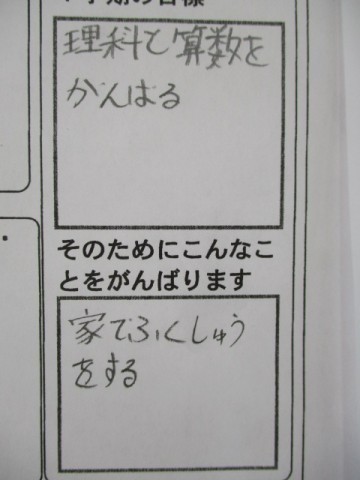 学期の目標
理科と算数を
がんばる
そのためにこんなこ
とをがんばります
家でふくしゅう
をする